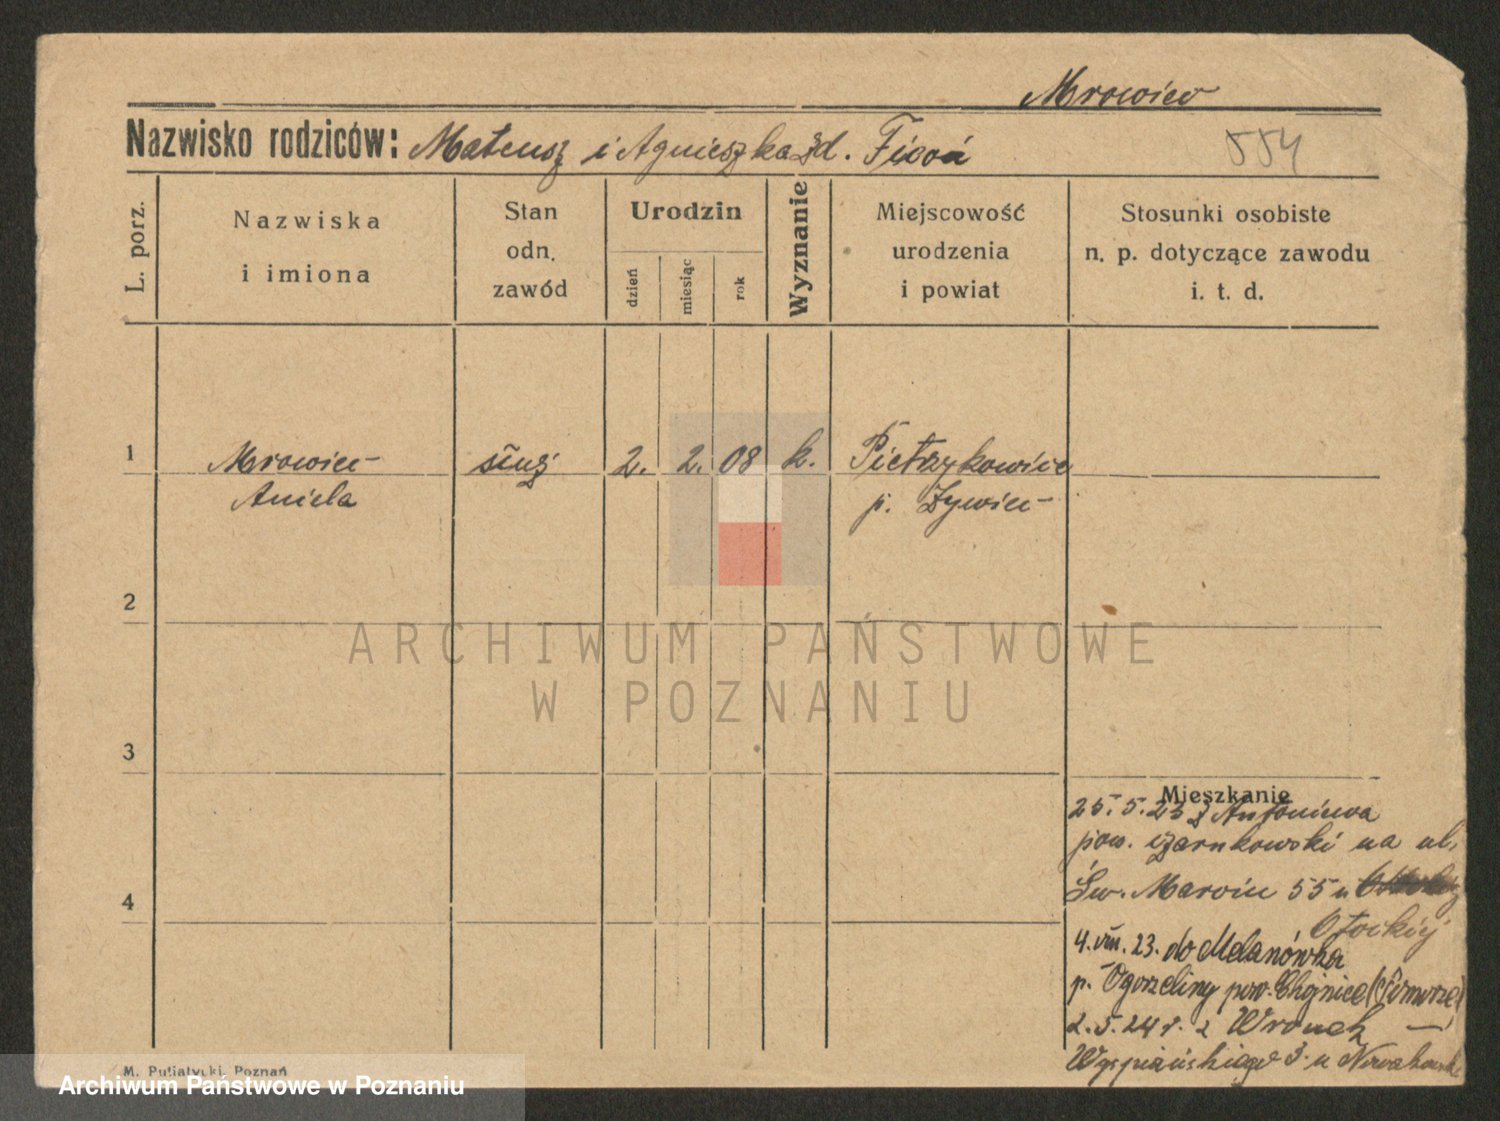 Mrowiec
Nazwisko rodziców: Mateusz i Agnieszka zd.
554
L. porz.
Nazwiska
i imiona
Stan
odn.
zawód
Urodzin
dzień
miesiąc
rok
Wyznanie
Miejscowość
urodzenia
i powiat
Stosunki osobiste
n. p. dotyczące zawodu
i. t. d.
1
Mrowiec
Aniela
służ
2.
2.
08
k.
Pietrzykowice
p. Żywiec
2
3
4
ARCHIWUM PAŃSTWOWE
W POZNANIU
Mieszkanie
25.5.23 z Antoniewa
pow. czarnkowski na ul.
Św. Marcin 55 u
Otockiej
4.VIII.23. do Melanówka
p. Ogorzeliny pow. Chojnice (Pomorze)
2.5.24 r. z Wronek
Wyspiańskiego 3. u
M. Putiatycki, Poznań
Archiwum Państwowe w Poznaniu